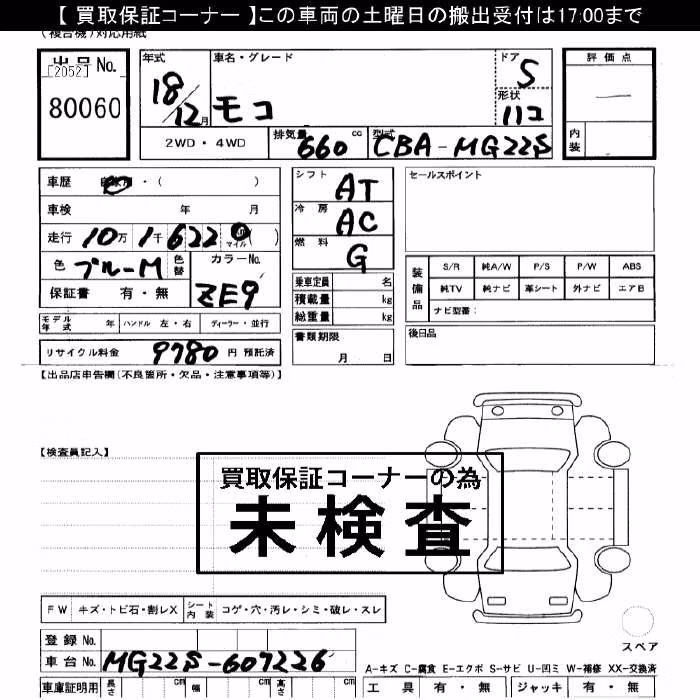 【 買取保証コーナー 】この車両の土曜日の搬出受付は17:00まで
(複合機)対応用紙
出品 No.
[2052]
80060
年式
18/12月
車名・グレード
モコ
ドア
5
形状
ハコ
評価点
—
内装
2WD・4WD
排気量 660 cc
型式 CBA-MG22S
車歴 自家用・( )
車検 年 月
走行 10万 1千 622 km マイル ( )
色 ブルーM 色替
カラーNo. ZE9
保証書 有・無
シフト AT
冷房 AC
燃料 G
乗車定員 名
積載量 kg
総重量 kg
書類期限
月 日
セールスポイント
装備品
S/R 純A/W P/S P/W ABS
純TV 純ナビ 革シート 外ナビ エアB
ナビ型番:
後日品
モデル年式 年 ハンドル 左・右 ディーラー・並行
リサイクル料金 9780 円 預託済
【出品店申告欄(不良箇所・欠品・注意事項等)】
【検査員記入】
買取保証コーナーの為
未検査
FW キズ・トビ石・割レX シート内装 コゲ・穴・汚レ・シミ・破レ・スレ
登録 No.
車台 No. MG22S-607226
車庫証明用 長さ cm 幅 cm 高さ cm
スペア
A-キズ C-腐食 E-エクボ S-サビ U-凹ミ W-補修 XX-交換済
工具 有・無 ジャッキ 有・無